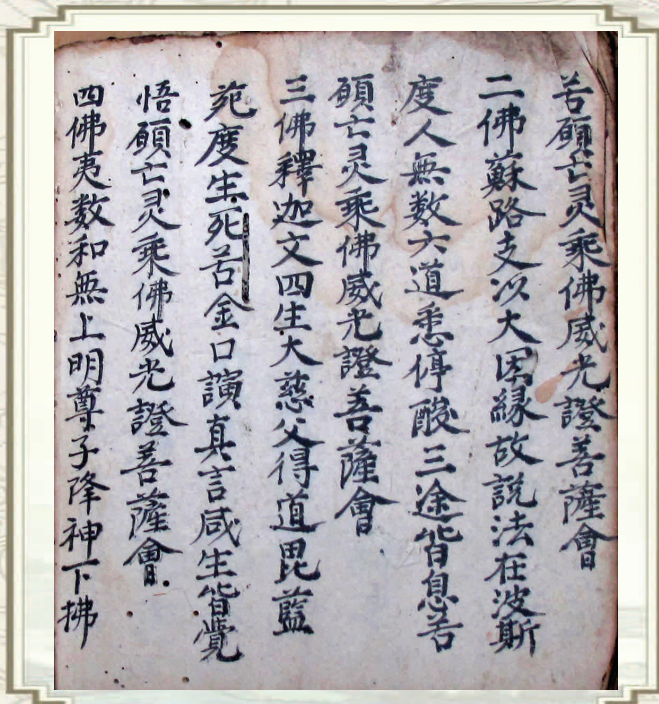 苦願亡灵乘佛威光證善薩會
二佛蘇路支以大因緣故說法在波斯
度人無数六道悉停酸三途皆息苦
願亡灵乘佛威光證善薩會
三佛釋迦文四生大慈父得道毘藍
苑度生死苦金口演真言咸生皆覺
悟願亡灵乘佛威光證善薩會
四佛夷数和無上明尊子降神下拂